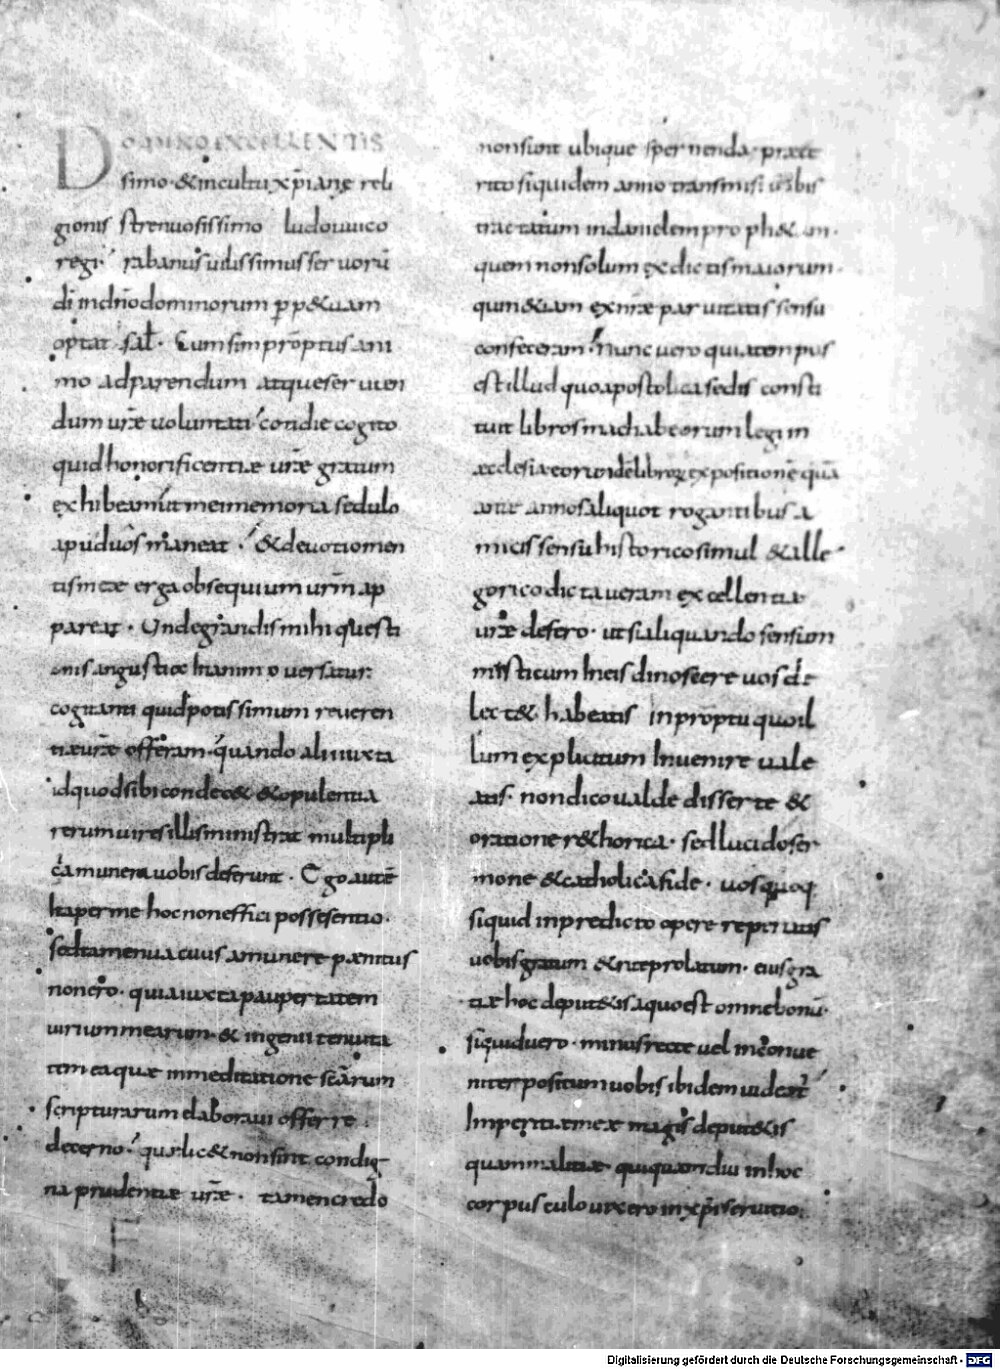 DOMINO EXCELLENTIS
simo · & incultu xp̄ianę reli
gionis strenuosissimo ludouuico
regi · rabanus uilissimus seruorū
dī in dn̄o dominorum pp&uam
optat sał · Cum sim prōptus ani
mo ad parendum atque seruien
dum urę̄ uoluntati cotidie cogito
quid honorificentiæ urǣ gratum
exhibeam · ut mei memoria sedulo
apud uos maneat · & deuotio men
tis meæ erga obsequium urm̄ ap
pareat · Unde grandis mihi questi
onis angustia in animo uersatur
cogitanti quid potissimum reueren
tiæ urǣ offeram · quando alii iuxta
id quod sibi condec& & opulentia
rerum uires illis ministrat multipli
cia munera uobis deferunt · Ego autē
ita per me hoc non effici posse sentio ·
sed tamen uacuus a munere pænitus
non ero · quia iuxta paupertatem
uirium mearum & ingenii tenuita
tem ea quæ in meditatione scārum
scripturarum elaboraui offerre
decerno · qua lic& non sint condig
na prudentiæ urǣ · tamen credo
F
non sunt ubique spernenda · præte
rito siquidem anno transmisi uobis
tractatum in danielem proph&am ·
quem non solum ex dictis maiorum ·
quin & iam ex nrǣ paruitatis sensu
confeceram · Nunc uero quia tempus
est illud quo apostolica sedis consti
tuit libros machabeorum legi in
æclesia eorundē librorꝝ expositionē quā
ante annos aliquot rogantibus a
micis sensu historico simul & alle
gorico dictaueram excellentiæ
urǣ defero · ut si aliquando sensum
misticum in eis dinoscere uos de
lect& habeatis in prōptu quo il
lum explicitum inuenire uale
atis · non dico ualde disserte &
oratione r&horica · sed lucido ser
mone & catholica fide · uos quoq
siquid in predicto opere repperitis
uobis gratum & rite prolatum · eius gra
tiæ hoc deput&is a quo est omne bonū ·
siquid uero · minus recte uel inconue
nienter positum uobis ibidem uideat̄
imperitiæ meæ magis deput&is
quam malitiæ · qui quamdiu in hoc
corpusculo uixero in xp̄i seruitio
Digitalisierung gefördert durch die Deutsche Forschungsgemeinschaft - DFG